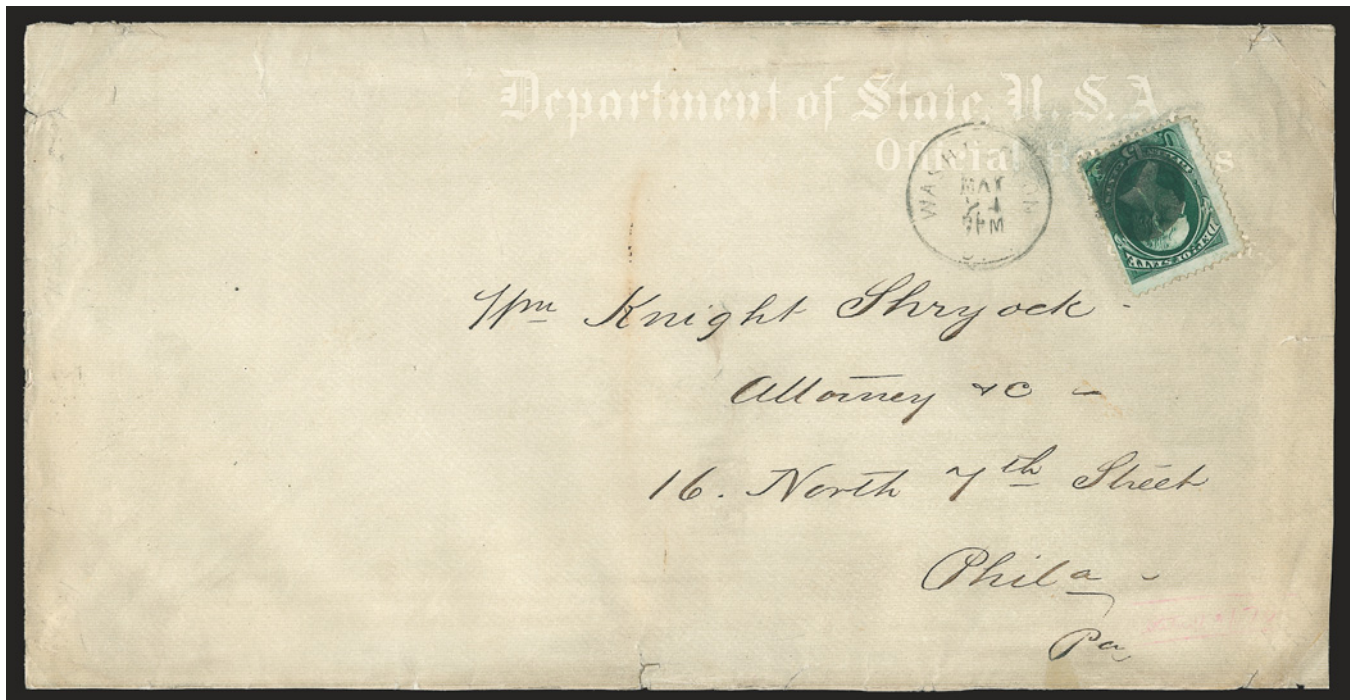 Department of State, U.S.A.
Official
WASHINGTON
MAY
24
9PM
Wm Knight Shryock
Attorney &c
16. North 7th Street
Phila
Pa